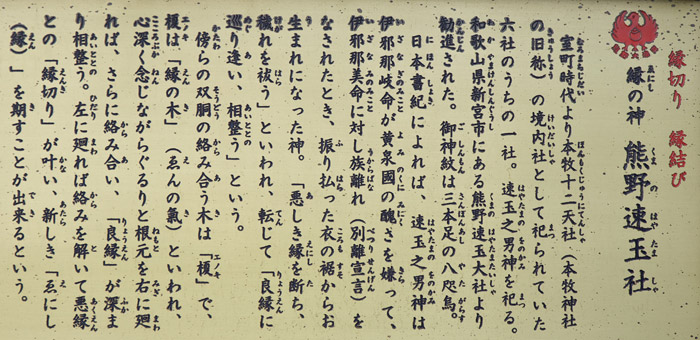 縁切り　縁結び
縁の神　熊野速玉社
室町時代より本牧十二天社（本牧神社
の旧称）の境内社として祀られていた
六社のうちの一社。速玉之男神を祀る。
和歌山県新宮市にある熊野速玉大社より
勧進された。御神紋は三本足の八咫烏。
日本書紀によれば、速玉之男神は
伊邪那岐命が黄泉國の醜さを嫌って、
伊邪那美命に対し族離れ（別離宣言）を
なされたとき、振り払った衣の裾からお
生まれになった神。「悪しき縁を断ち、
穢れを祓う」といわれ、転じて「良縁に
巡り逢い、相整う」という。
傍らの双胴の絡み合う木は「榎」で、
榎は「縁の木」（ゑんの氣）といわれ、
心深く念じながらぐるりと根元を右に廻
れば、さらに絡み合い、「良縁」が深ま
り相整う。左に廻れば絡みを解いて悪縁
との「縁切り」が叶い、新しき「ゑにし
（縁）」を期すことが出来るという。